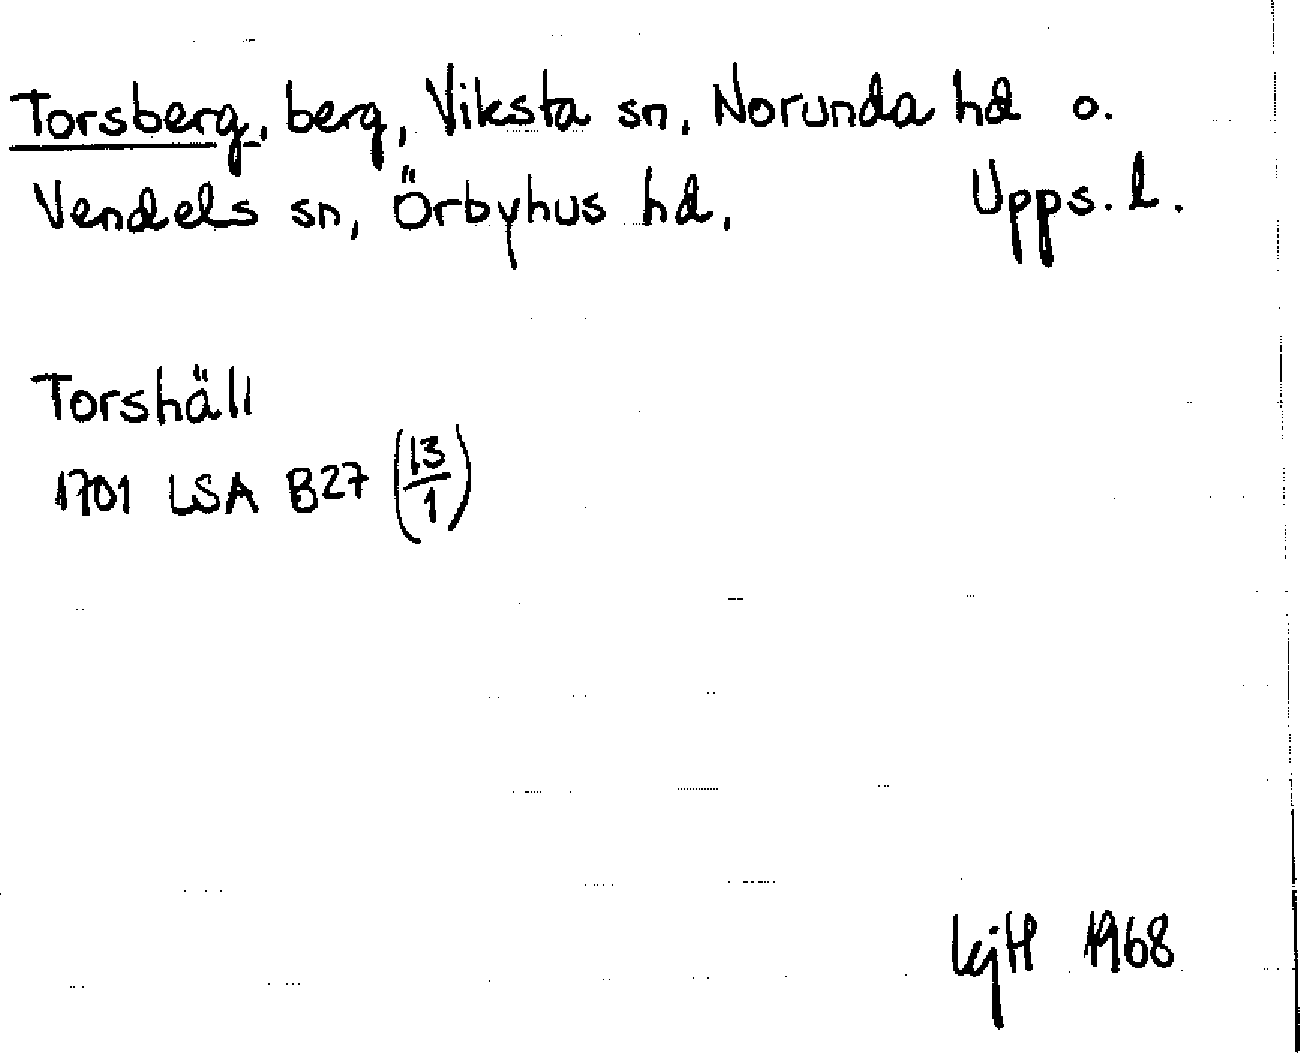 Torsberg, berg, Viksta sn, Norunda hd o.
Vendels sn, Örbyhus hd. Upps. l.
Torshäll
1701 LSA B27 (13/1)
1968